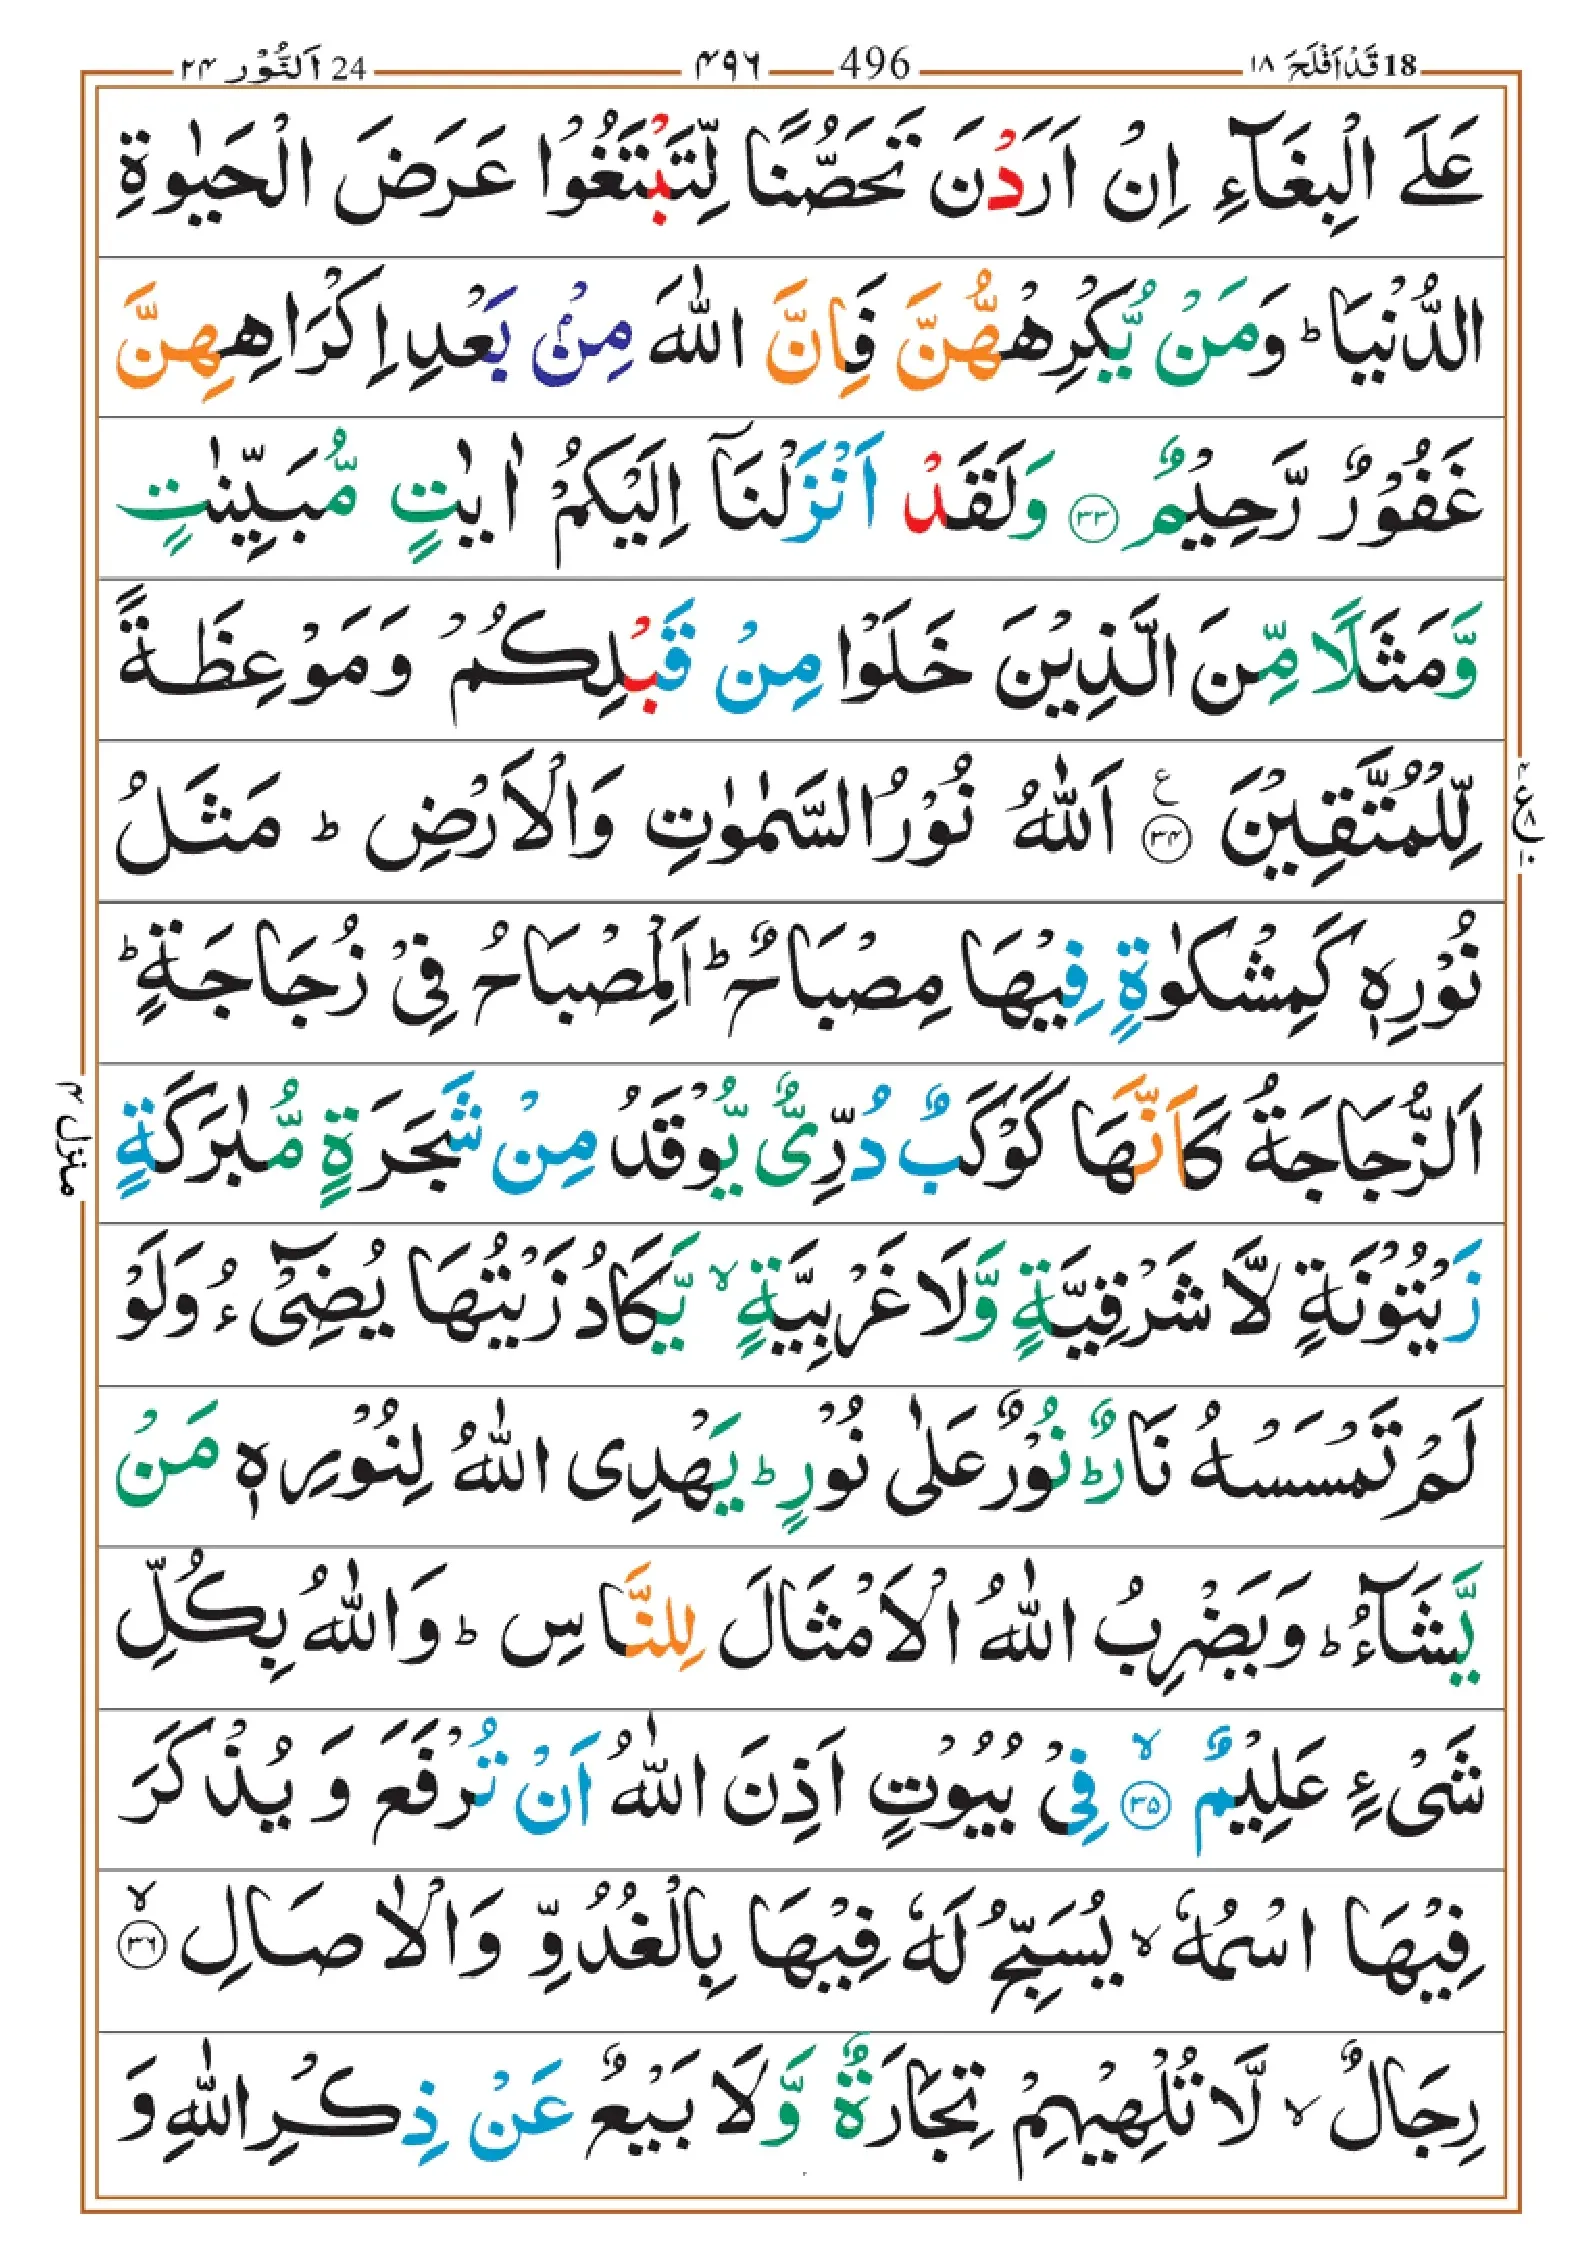 18 قَدْ اَفْلَحَ ١٨
496 ۴۹۶
24 اَلنُّوْر ۲۴
عَلَى الْبِغَآءِ اِنْ اَرَدْنَ تَحَصُّنًا لِّتَبْتَغُوْا عَرَضَ الْحَيٰوةِ
الدُّنْيَا ؕ وَمَنْ يُّكْرِهْهُّنَّ فَاِنَّ اللّٰهَ مِنْۢ بَعْدِ اِكْرَاهِهِنَّ
غَفُوْرٌ رَّحِيْمٌ ۝۳۳ وَلَقَدْ اَنْزَلْنَاۤ اِلَيْكُمْ اٰيٰتٍ مُّبَيِّنٰتٍ
وَّمَثَلًا مِّنَ الَّذِيْنَ خَلَوْا مِنْ قَبْلِكُمْ وَمَوْعِظَةً
لِّلْمُتَّقِيْنَ ۝۳۴ ع اَللّٰهُ نُوْرُ السَّمٰوٰتِ وَالْاَرْضِ ؕ مَثَلُ
نُوْرِهٖ كَمِشْكٰوةٍ فِيْهَا مِصْبَاحٌ ؕ اَلْمِصْبَاحُ فِيْ زُجَاجَةٍ ؕ
اَلزُّجَاجَةُ كَاَنَّهَا كَوْكَبٌ دُرِّيٌّ يُّوْقَدُ مِنْ شَجَرَةٍ مُّبٰرَكَةٍ
زَيْتُوْنَةٍ لَّا شَرْقِيَّةٍ وَّلَا غَرْبِيَّةٍ ۙ يَّكَادُ زَيْتُهَا يُضِيْٓءُ وَلَوْ
لَمْ تَمْسَسْهُ نَارٌ ؕ نُوْرٌ عَلٰى نُوْرٍ ؕ يَهْدِى اللّٰهُ لِنُوْرِهٖ مَنْ
يَّشَآءُ ؕ وَيَضْرِبُ اللّٰهُ الْاَمْثَالَ لِلنَّاسِ ؕ وَاللّٰهُ بِكُلِّ
شَىْءٍ عَلِيْمٌ ۝۳۵ ۙ فِيْ بُيُوْتٍ اَذِنَ اللّٰهُ اَنْ تُرْفَعَ وَ يُذْكَرَ
فِيْهَا اسْمُهٗ ۙ يُسَبِّحُ لَهٗ فِيْهَا بِالْغُدُوِّ وَالْاٰصَالِ ۝۳۶ ۙ
رِجَالٌ ۙ لَّا تُلْهِيْهِمْ تِجَارَةٌ وَّلَا بَيْعٌ عَنْ ذِكْرِ اللّٰهِ وَ
منزل ۴